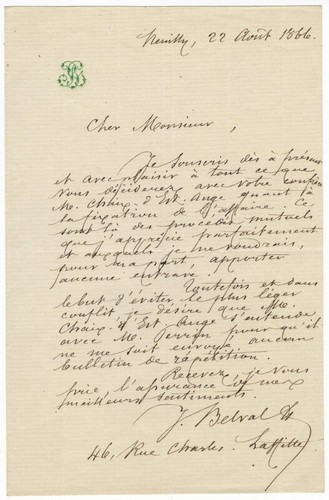 Neuilly, 22 Août 1866.
Cher Monsieur,
Je souscris dès à présent
et avec plaisir à tout ce que
vous déciderez avec votre confrère
Me. Chaix d'Est-Ange quant à
la fixation de l'affaire. Ce
sont là des procédés mutuels
que j'apprécie parfaitement
et auxquels je ne voudrais,
pour ma part, apporter
aucune entrave.
Toutefois et dans
le but d'éviter le plus léger
conflit, je désire que Me.
Chaix d'Est-Ange s'entende
avec M. Perrin pour qu'il
ne me soit envoyé aucun
bulletin de répétition.
Recevez, je vous
prie, l'assurance de mes
meilleurs sentiments.
J. Belval
46, Rue Charles Laffitte